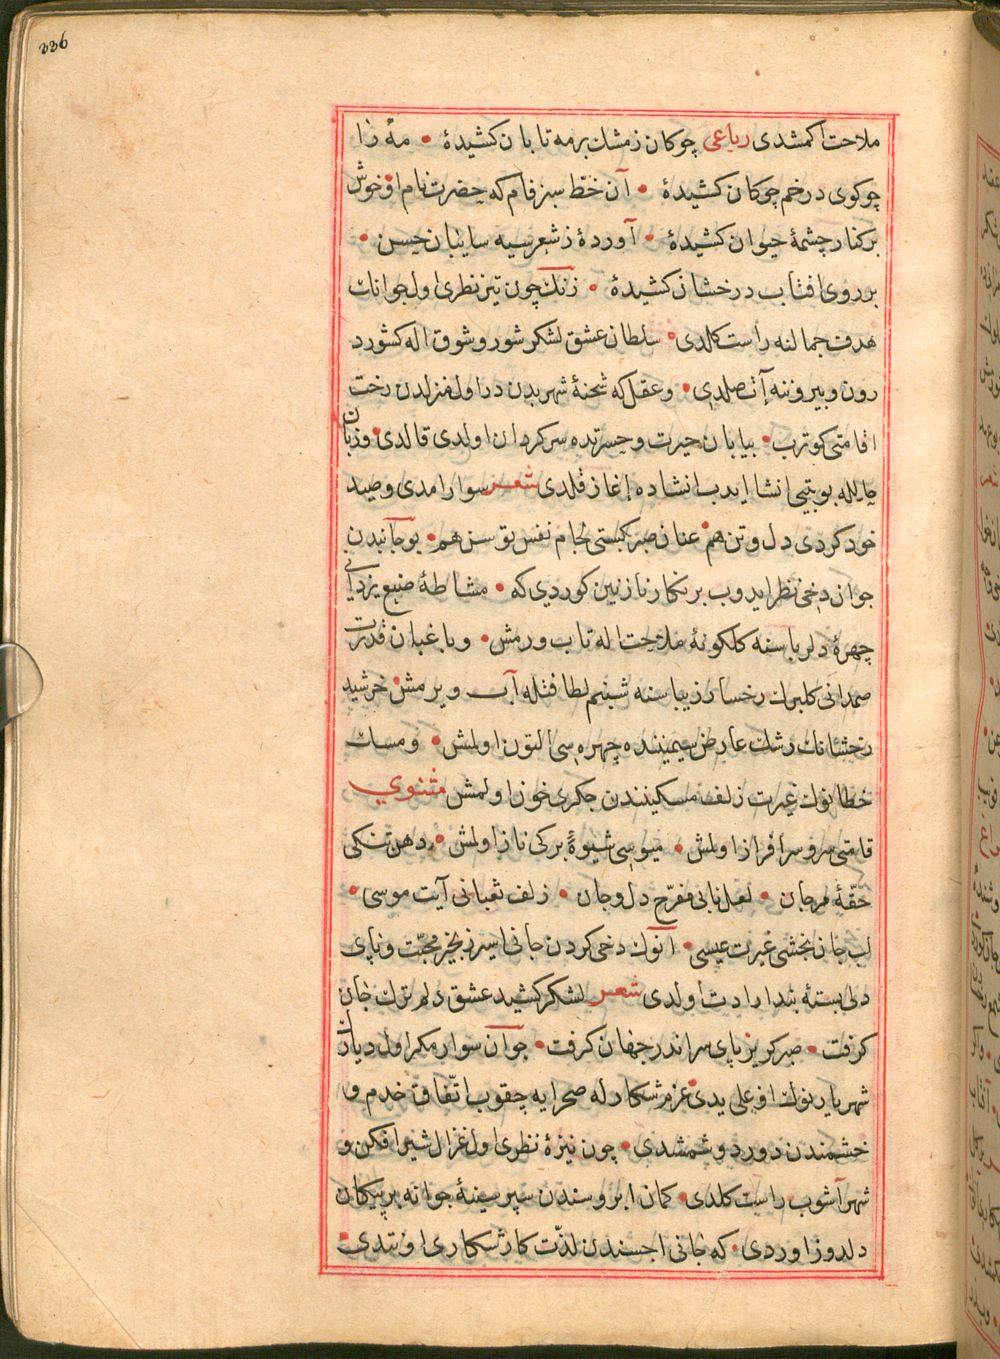 336
ملاحت اکمشدی رباعی چوکان زمشك برمه تابان کشیدۀ • مه را
چوکوی درخم چوکان کشیدۀ • آن خطّ سبز فام که خضرت نام او خوش
برکنار چشمۀ حیوان کشیدۀ • آوردۀ ز شعر سیه سایبان حسن •
برروی افتاب درخشان کشیدۀ • زنك چون تیر نظری اول جوانك
هدف جمالنه راست کلدی • سلطان عشق لشکر شور و شوق اله کشور د
رون و بیروننه آت صلدی • وعقل که شحنۀ شهر بدن در اول منزلدن رخت
اقامتی کوترب • بیابان حیرت وحسرتده سرکردان اولدی قالدی • وزبان
حالله بو بیتی انشا ایدب انشاده اغاز قلدی شعر سوار امدی وصید
خود کردی دل وتن هم • عنان صبر کبستی لجام نفس توسن هم • بوجانبدن
جوان دخی نظر ایدوب بر نکار نازنین کوردی که • مشاطۀ صنع یزدانی
چهرۀ دلرباسنه کلکونۀ ملاحت اله تاب ورمش • وباغبان قدرت
صمدانی کلبرك رخسار زیباسنه شبنم لطافتله آب ویرمش • خرشید
رخشانك رشك عارض سیمیننده چهره سی التون اولمش • ومسك
خطانوك غیرت زلف مسکینندن جکری خون اولمش مثنوی
قامتی سرو سرافراز اولمش • میوسی شیوۀ برکی ناز اولمش • دهن تنکی
حقّۀ مرجان • لعل نابی مفرّح دل وجان • زلف ثعبانی آیت موسی •
لب جان بخشی غیرت عیسی • آنوك دخی کردن جانی اسیر زنجیر محبّت وپای
دلی بستۀ بند ارادت اولدی شعر لشکر کشید عشق دلم ترك جان
کرفت • صبر کریز پای سر اندر جهان کرفت • جوان سوار مکر اول دیارك
شهریارینوك اوغلی یدی • عزم شکارله صحرایه چقوب اتّفاق خدم و
خشمندن دور دوشمشدی • چون نیزۀ نظری اول غزال شیر افکن و
شهر آشوب راست کلدی • کمان ابروسندن سپر سینۀ جوانه بر پیکان
دلدوز اوردی • که جانی اجسندن لذّت کار شکاری اونتدی •